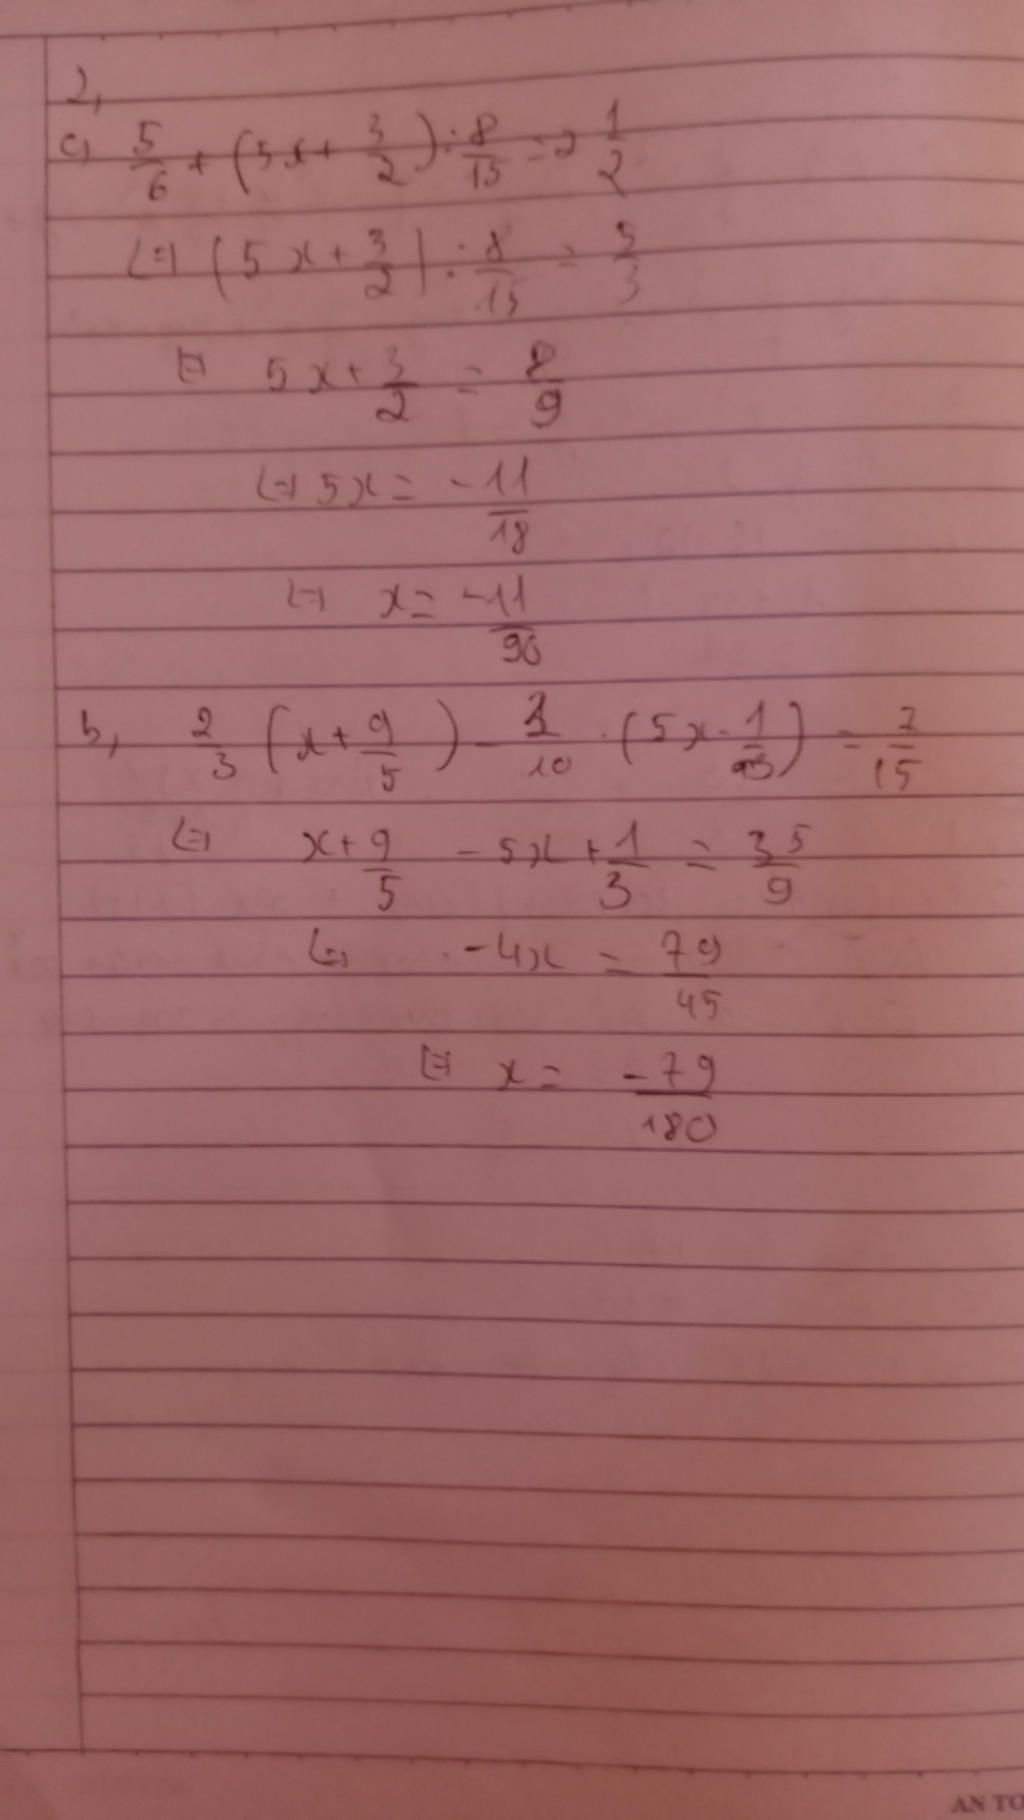 2,
c, 5/6 + (5x + 3/2) : 8/15 = 2 1/2
(=) (5x + 3/2) : 8/15 = 5/3
(=) 5x + 3/2 = 8/9
(=) 5x = -11/18
(=) x = -11/90
b, 2/3 (x + 9/5) - /10 . (5x - 1/3) = 7/15
(=) x + 9/5 - 5x + 1/3 = 35/9
(=) -4x = 79/45
(=) x = -79/180
AN TO